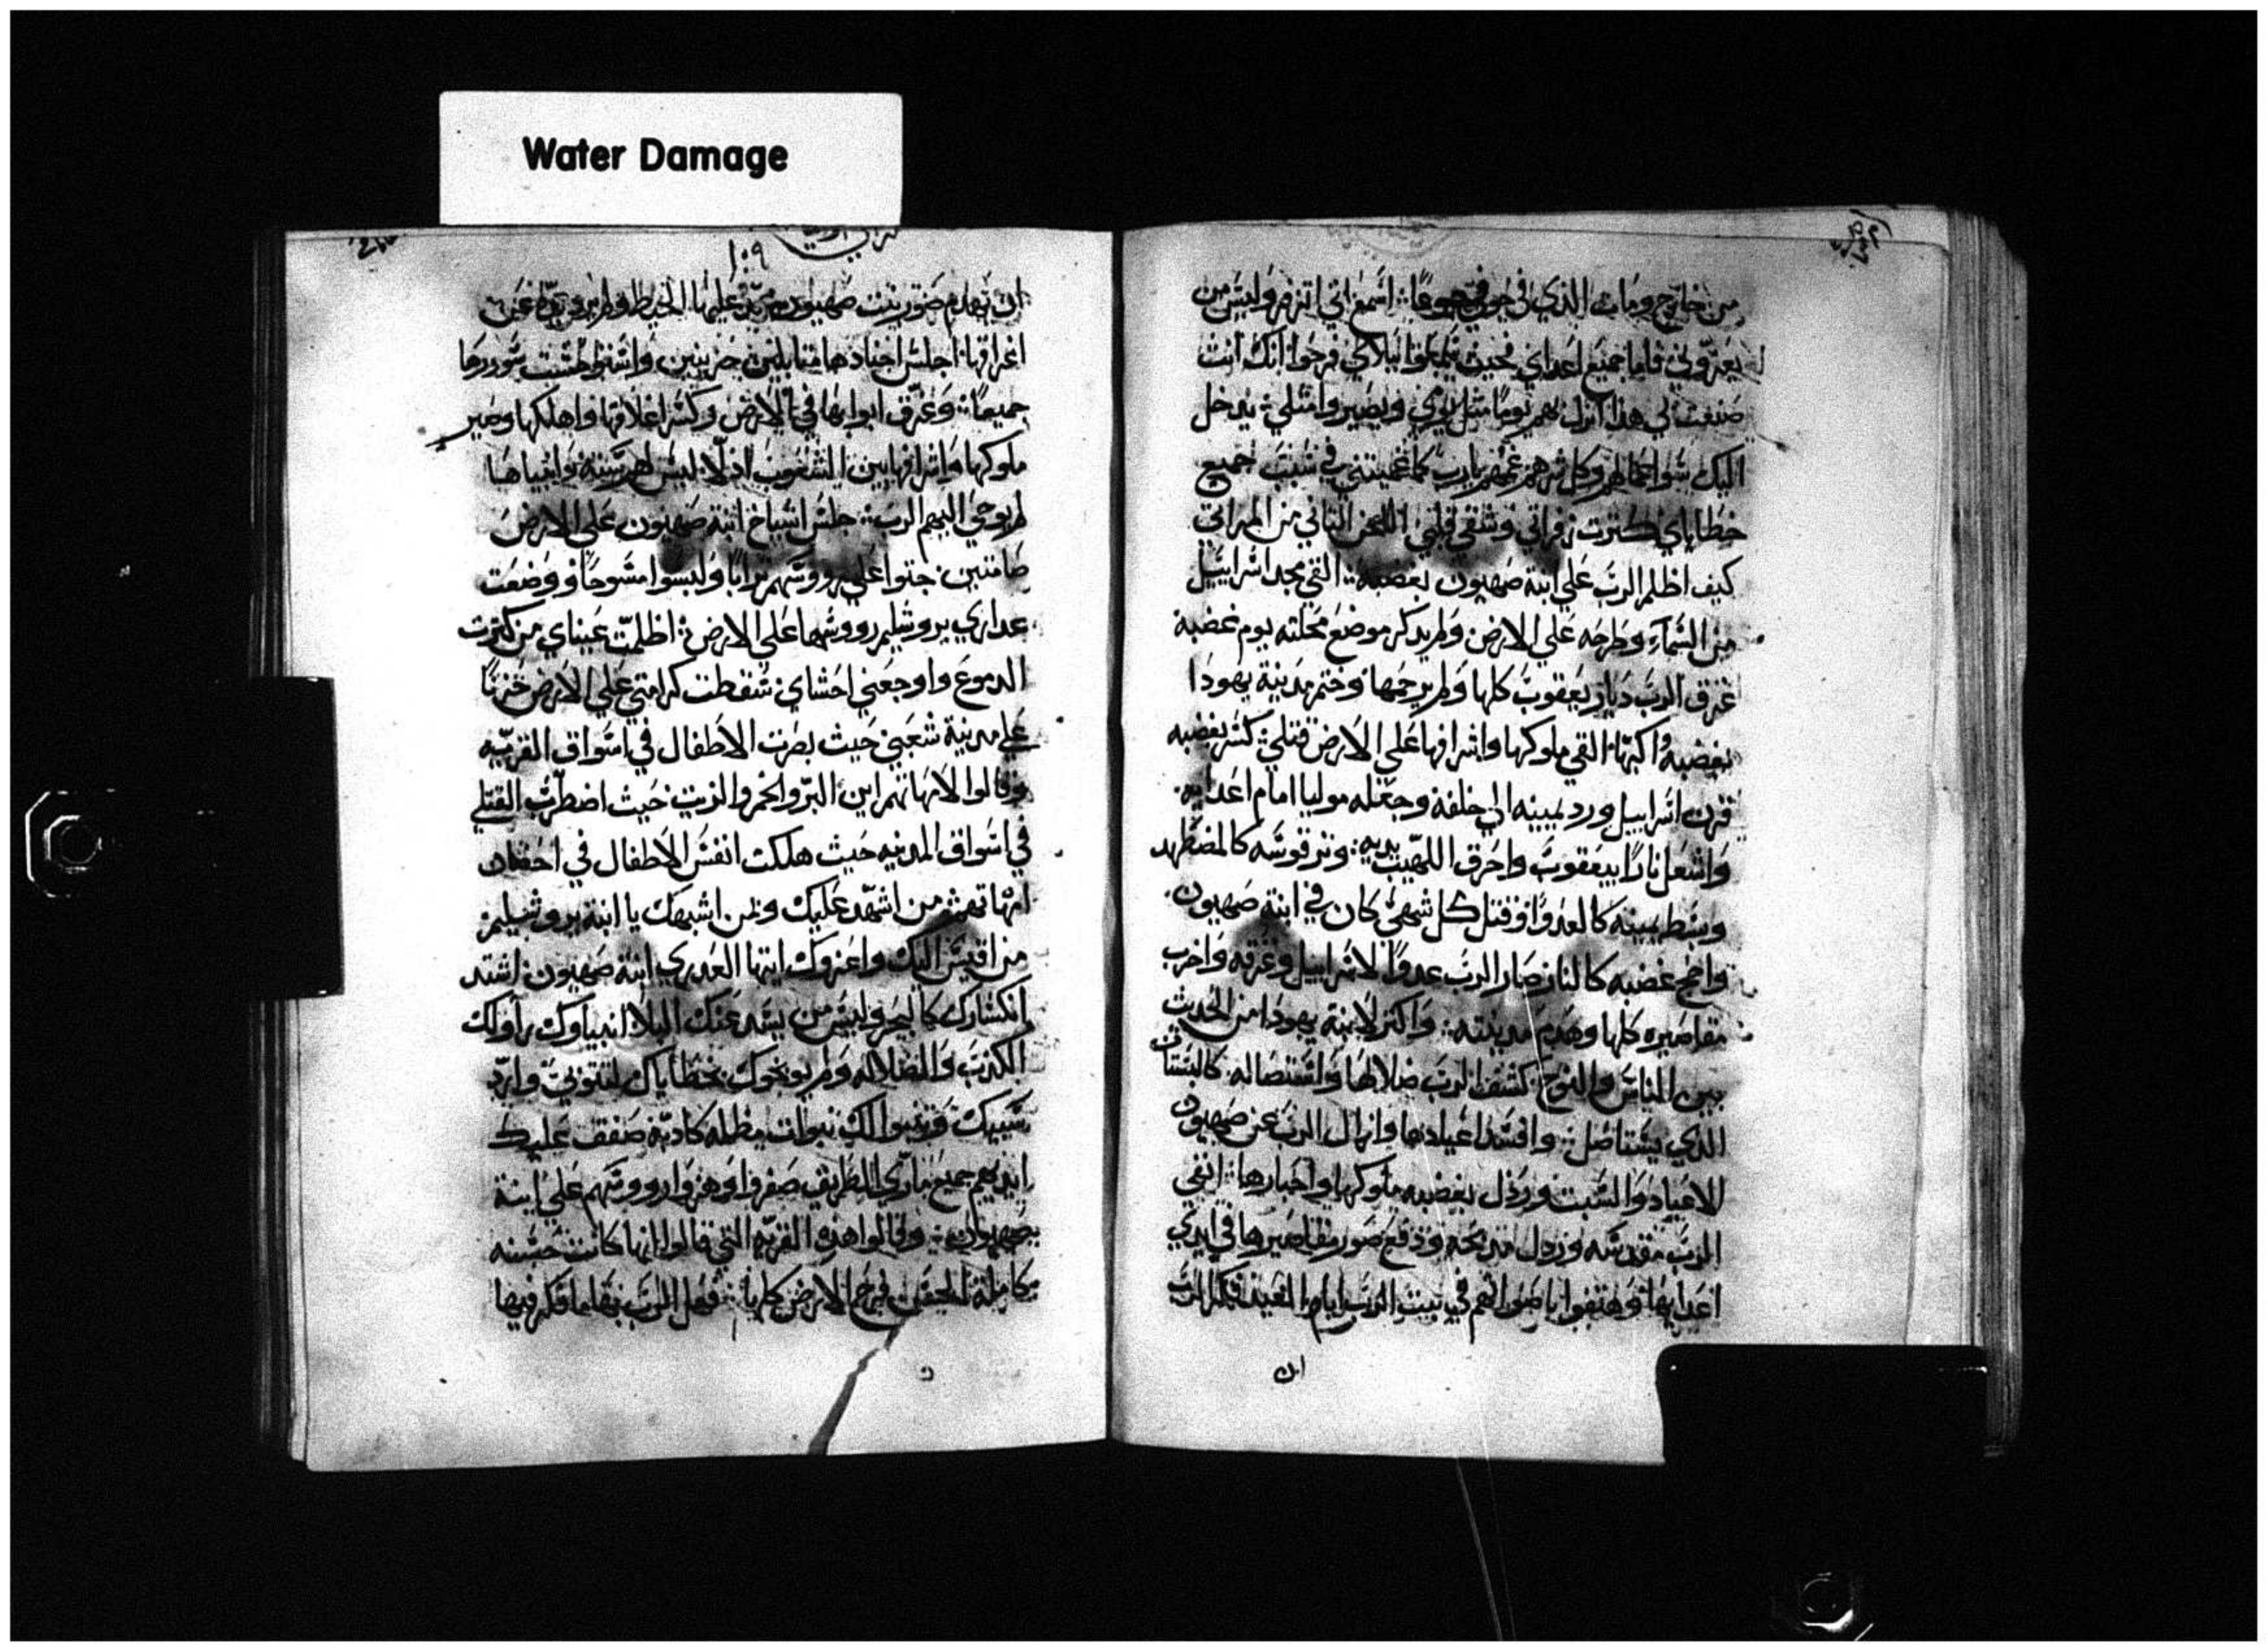 Water Damage
من خارج ومات الذي في جوفي جوعًا اسمع اني اتنهد وليس من
يعزوني فاما جميع اعداي فحيث سمعوا ببلاي فرحوا انك انت
صنعت لي هذا انزل بهم يومًا مثل يومي ويصيروا مثلي يدخل
اليك سو اعمالهم وكل شرهم عمهم يارب كما عممتني في سبب جميع
خطاياي كثرت زفراتي وشقي قلبي اللحن الثاني من المراثي
كيف اظلم الرب علي ابنة صهيون بغضبه القي مجد اسراييل
من السماء وطرحه علي الارض ولم يذكر موضع محلته يوم غضبه
غرق الرب ديار يعقوب كلها ولم يرحمها وختم مدينة يهودا
بغضبه واكبها القي ملوكها واشرافها علي الارض قتلي كسر بغضبه
قرن اسراييل ورد يمينه الي خلفه وجعله موليا امام اعدايه
واشعل نارًا بيعقوب واحرق اللهيب يديه وتر قوسه كالمضطهد
وبسط يمينه كالعدو وقتل كل شهي كان في ابنة صهيون
واجج غضبه كالنار صار الرب عدوًا لاسراييل وغرقه واخرب
مقاصيره كلها وهدم مدينته واكثر لابنة يهودا من الحديث
بين الناس والنوح كشف الرب ضلالها واستنصاله كالبستان
الذي يستاصل وافسد اعيادها وازال الرب عن صهيون
الاعياد والسبت ورذل بغضبه ملوكها واحبارها انفي
الرب مقدسه ورذل مذبحه ودفع صور مقاصيرها في ايدي
اعدايها وهتفوا باصواتهم في بيت الرب ايام العيد فكر الرب
ان
١٠٩
ان يهدم صور بنت صهيون مد عليها الخيط ولم يرد يده عن
اغراقها اجلس اجنادها متقابلين حزينين واسقط شتت سورها
جميعًا وغرق ابوابها في الارض وكسر اغلاقها واهلكها وصير
ملوكها واشرافها بين الشعوب اذلا ليس لهم سنة وانبياها
لم يوحي اليهم الرب جلس اشياخ ابنة صهيون علي الارض
صامتين حثوا علي رووسهم ترابًا ولبسوا مسوحًا ووضعت
عداري يروشليم رووسها علي الارض اظلمت عيناي من كثرت
الدموع واوجعني احشاي سقطت كرامتي علي الارض حزنًا
علي مدينة شعبي حيث بصرت الاطفال في اسواق القريه
وقالوا لامهاتهم اين البر والخمر والزيت حيث اضطرب القتلي
في اسواق المدينه حيث هلكت انفس الاطفال في احضان
امهاتهم من اشهد عليك ولمن اشبهك يا ابنة يروشليم
من اقيس اليك واعزوك ايتها العدري ابنة صهيون اشتد
انكسارك كالبحر وليس من يسد عنك البلا انبياوك راو لك
الكذب والضلاله ولم يوبخوك بخطاياك لتتوبي وارد
سبيك وتنبوا لك نبوات مظله كادبه صفق عليك
ايديهم جميع ماري الطريق صفروا وهزوا رووسهم علي ابنة
صهيون وقالوا هذه القريه التي قالوا انها كانت حسنه
كاملة الحسن فرح الارض كلها فعل الرب بها ما فكر فيها